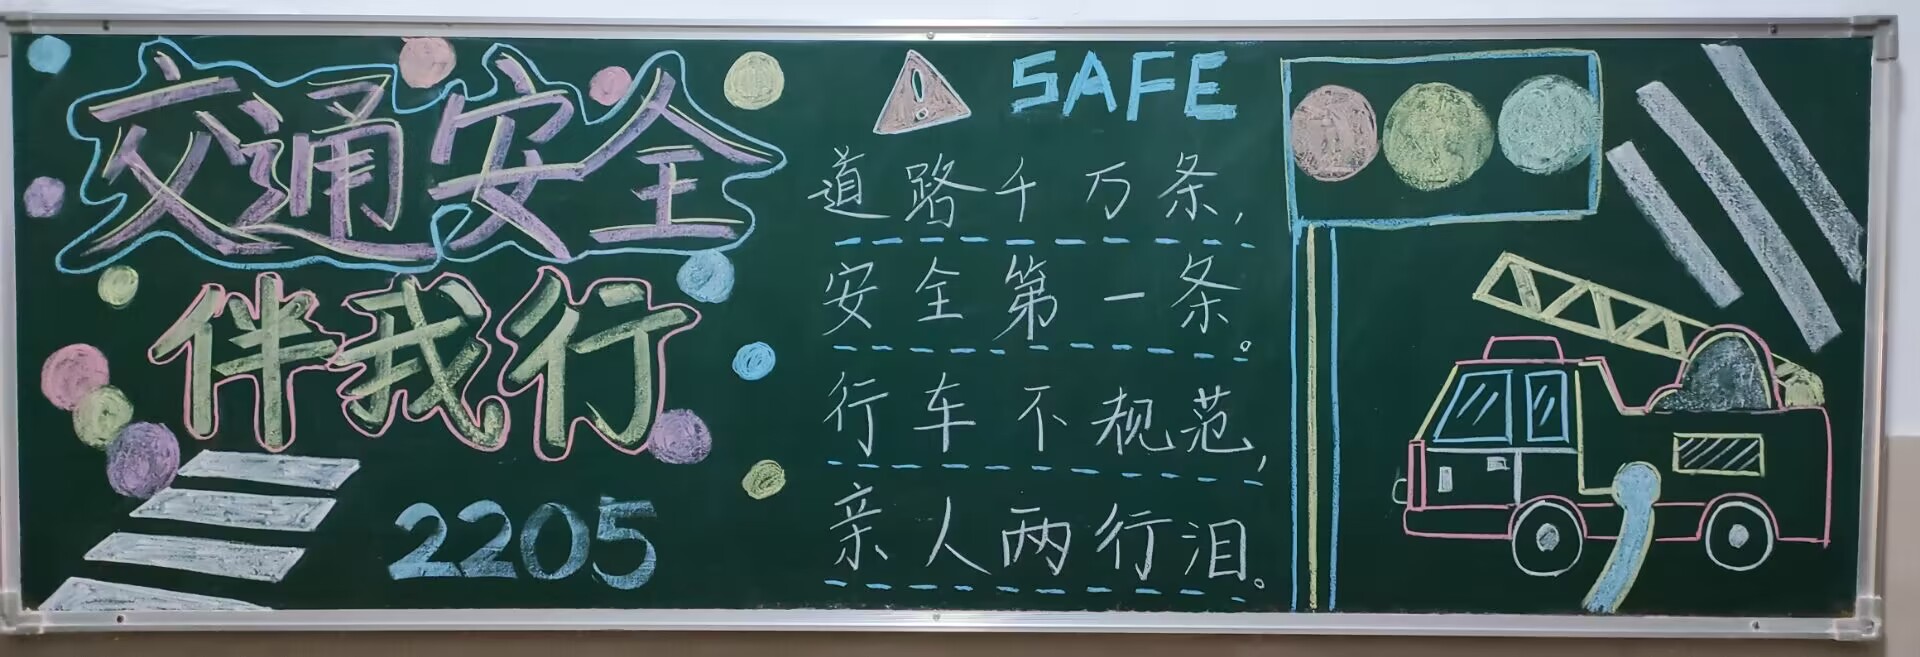 交通安全
伴我行
2205
! SAFE
道路千万条,
安全第一条。
行车不规范,
亲人两行泪。